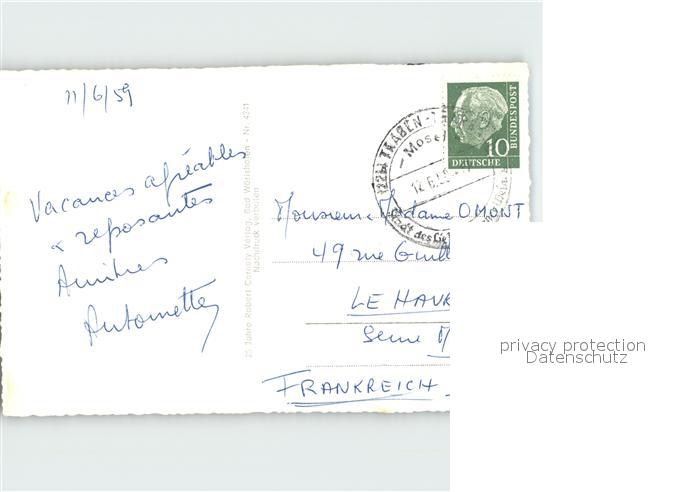 11/6/59
Vacances agréables
& reposantes
Amitiés
Antoinette
25 Jahre Robert Cernohy Verlag, Bad Wörishofen - Nr. 4241
Nachdruck verboten
(22b) TRABEN-
Mosel
12.6.59
Stadt des
10
DEUTSCHE
BUNDESPOST
Monsieur Madame OMONT
49 rue Guill
LE HAV
Seine M
FRANKREICH
privacy protection
Datenschutz